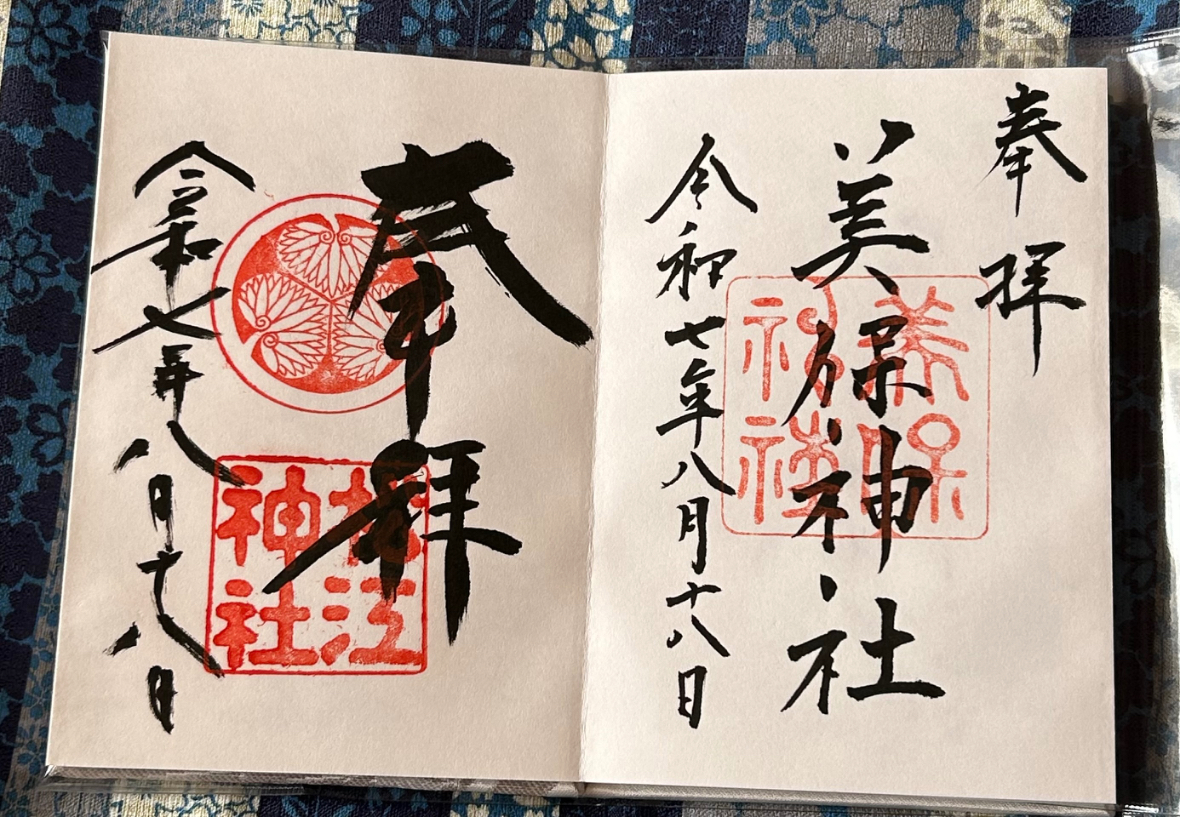 奉拝
美保神社
美保
神社
令和七年八月十八日
奉拝
松江
神社
令和七年八月十八日